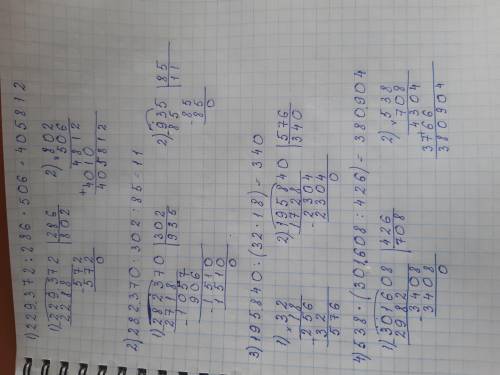 1) 229372 : 286 · 506 = 405812
1) 229372 | 286
2288 | 802
- 572
572
0
2) × 802
506
4812
+ 4010
405812
2) 282370 : 302 : 85 = 11
1) 282370 | 302
2718 | 935
- 1057
906
- 1510
1510
0
2) - 935 | 85
85 | 11
- 85
85
0
3) 195840 : (32 · 18) = 340
1) × 32
18
+ 256
32
576
2) 195840 | 576
1728 | 340
- 2304
2304
0
4) 538 · (301608 : 426) = 380904
1) 301608 | 426
2982 | 708
- 3408
3408
0
2) × 538
708
4304
3766
380904